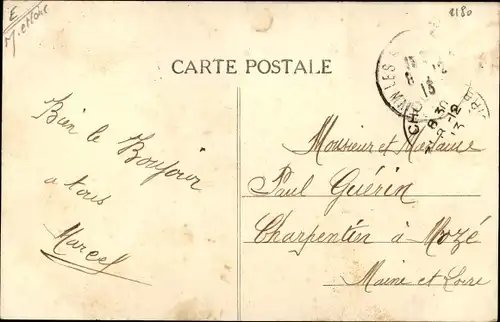 E
2180
CARTE POSTALE
Bien le Bonjour
a tous
Marcel
Monsieur et Madame
Paul Guérin
Charpentier à Mozé
Maine et Loire